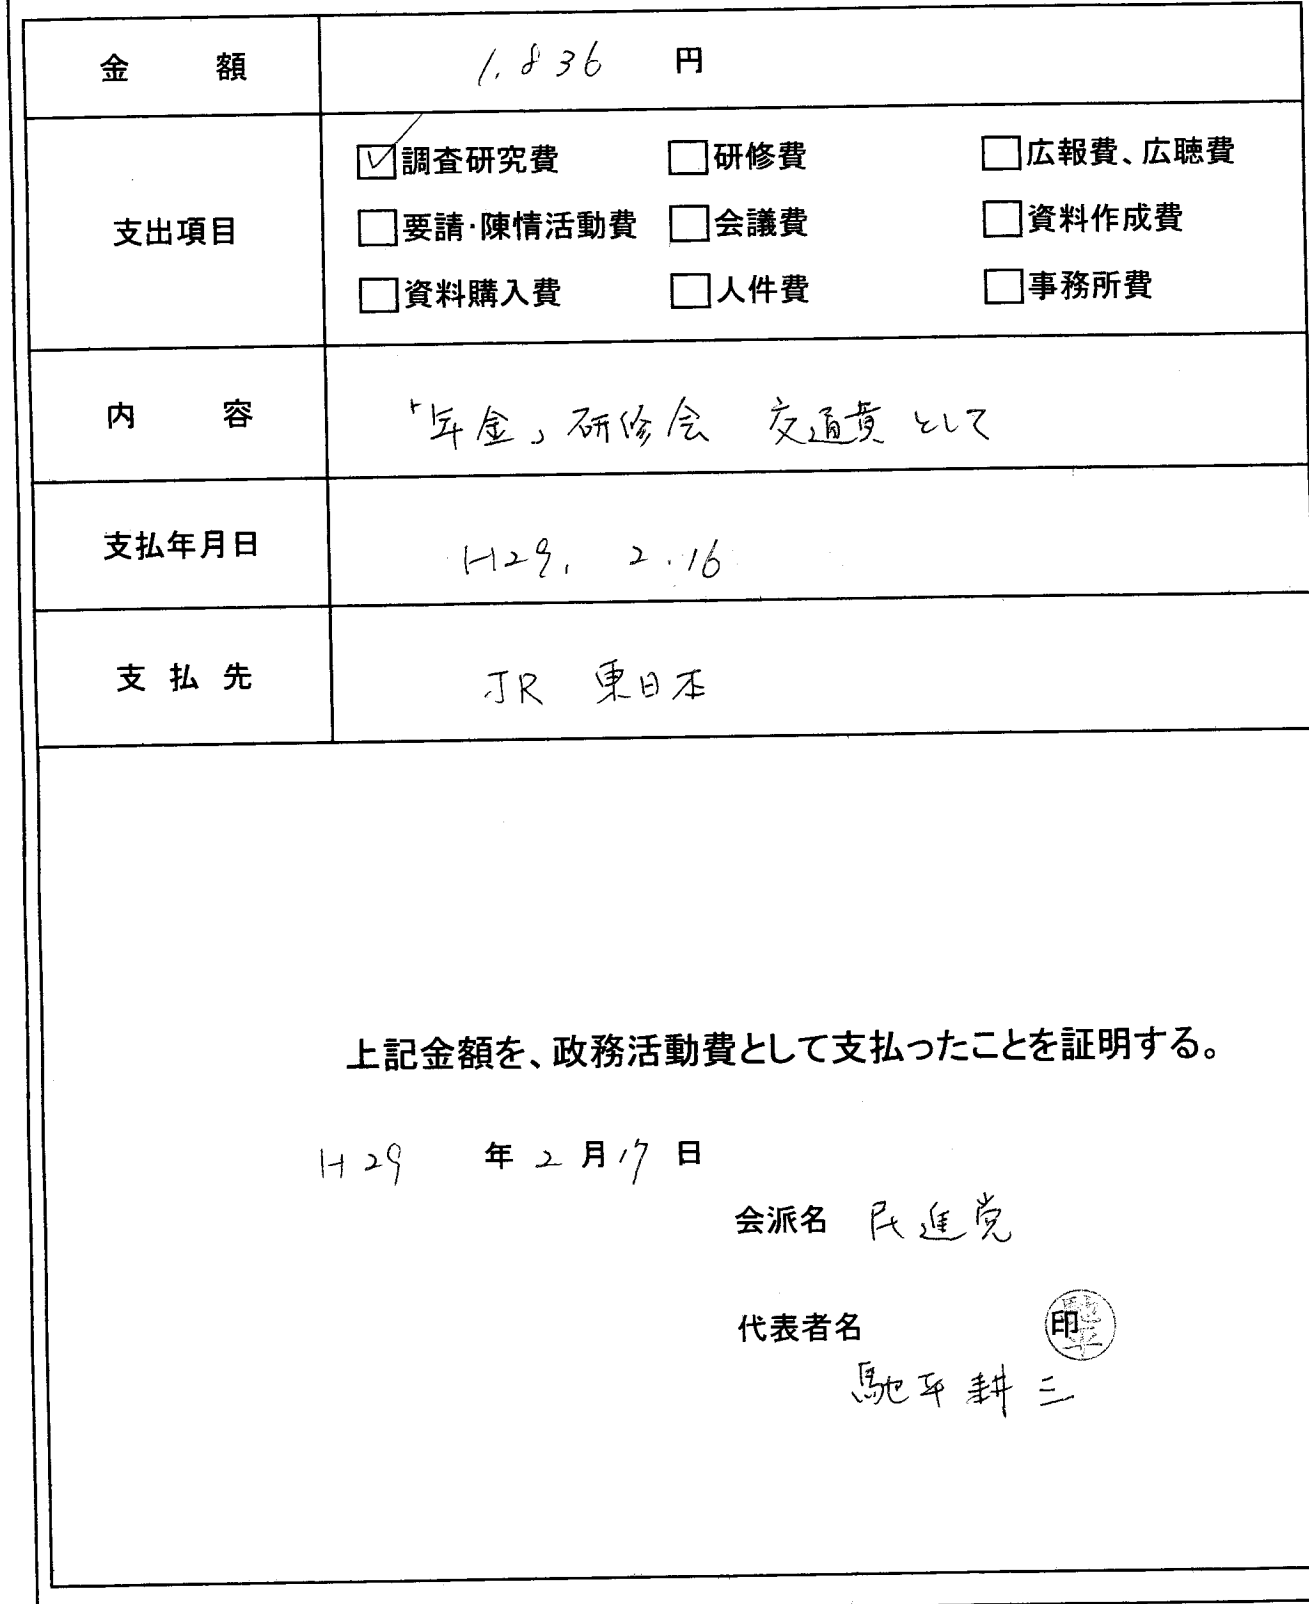 金 額 1,836 円
☑調査研究費 □研修費 □広報費、広聴費
支出項目 □要請・陳情活動費 □会議費 □資料作成費
□資料購入費 □人件費 □事務所費
内 容 「年金」研修会 交通費として
支払年月日 H29. 2.16
支 払 先 JR 東日本
上記金額を、政務活動費として支払ったことを証明する。
H29 年 2 月 17 日
会派名 民進党
代表者名 印
馳平耕三